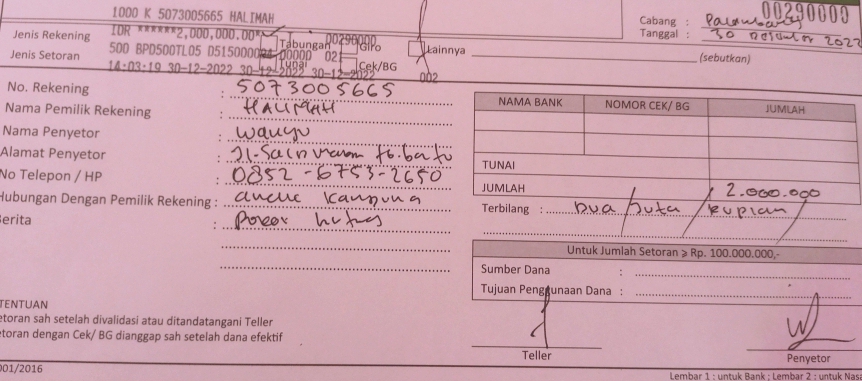 1000 K 5073005665 HALIMAH
00290000
Cabang : Palembang
Jenis Rekening IDR ******2,000,000.00* Tabungan 00290000 Giro Lainnya
Tanggal : 30 Desember 2022
Jenis Setoran 500 BPD500TL05 D5150000 00000 021 Tunai Cek/BG
(sebutkan)
14:03:19 30-12-2022 30-12-2022 30-12-2022 002
No. Rekening : 5073005665
Nama Pemilik Rekening : HALIMAH
Nama Penyetor : wahyu
Alamat Penyetor : Jl.
No Telepon / HP : 0852-6753-2650
Hubungan Dengan Pemilik Rekening : kandung
Berita :
NAMA BANK NOMOR CEK/ BG JUMLAH
TUNAI
JUMLAH 2.000.000
Terbilang : Dua / Juta / Rupiah /
Untuk Jumlah Setoran ⩾ Rp. 100.000.000,-
Sumber Dana :
Tujuan Penggunaan Dana :
TENTUAN
etoran sah setelah divalidasi atau ditandatangani Teller
etoran dengan Cek/ BG dianggap sah setelah dana efektif
Teller
Penyetor
001/2016
Lembar 1 : untuk Bank ; Lembar 2 : untuk Nasa